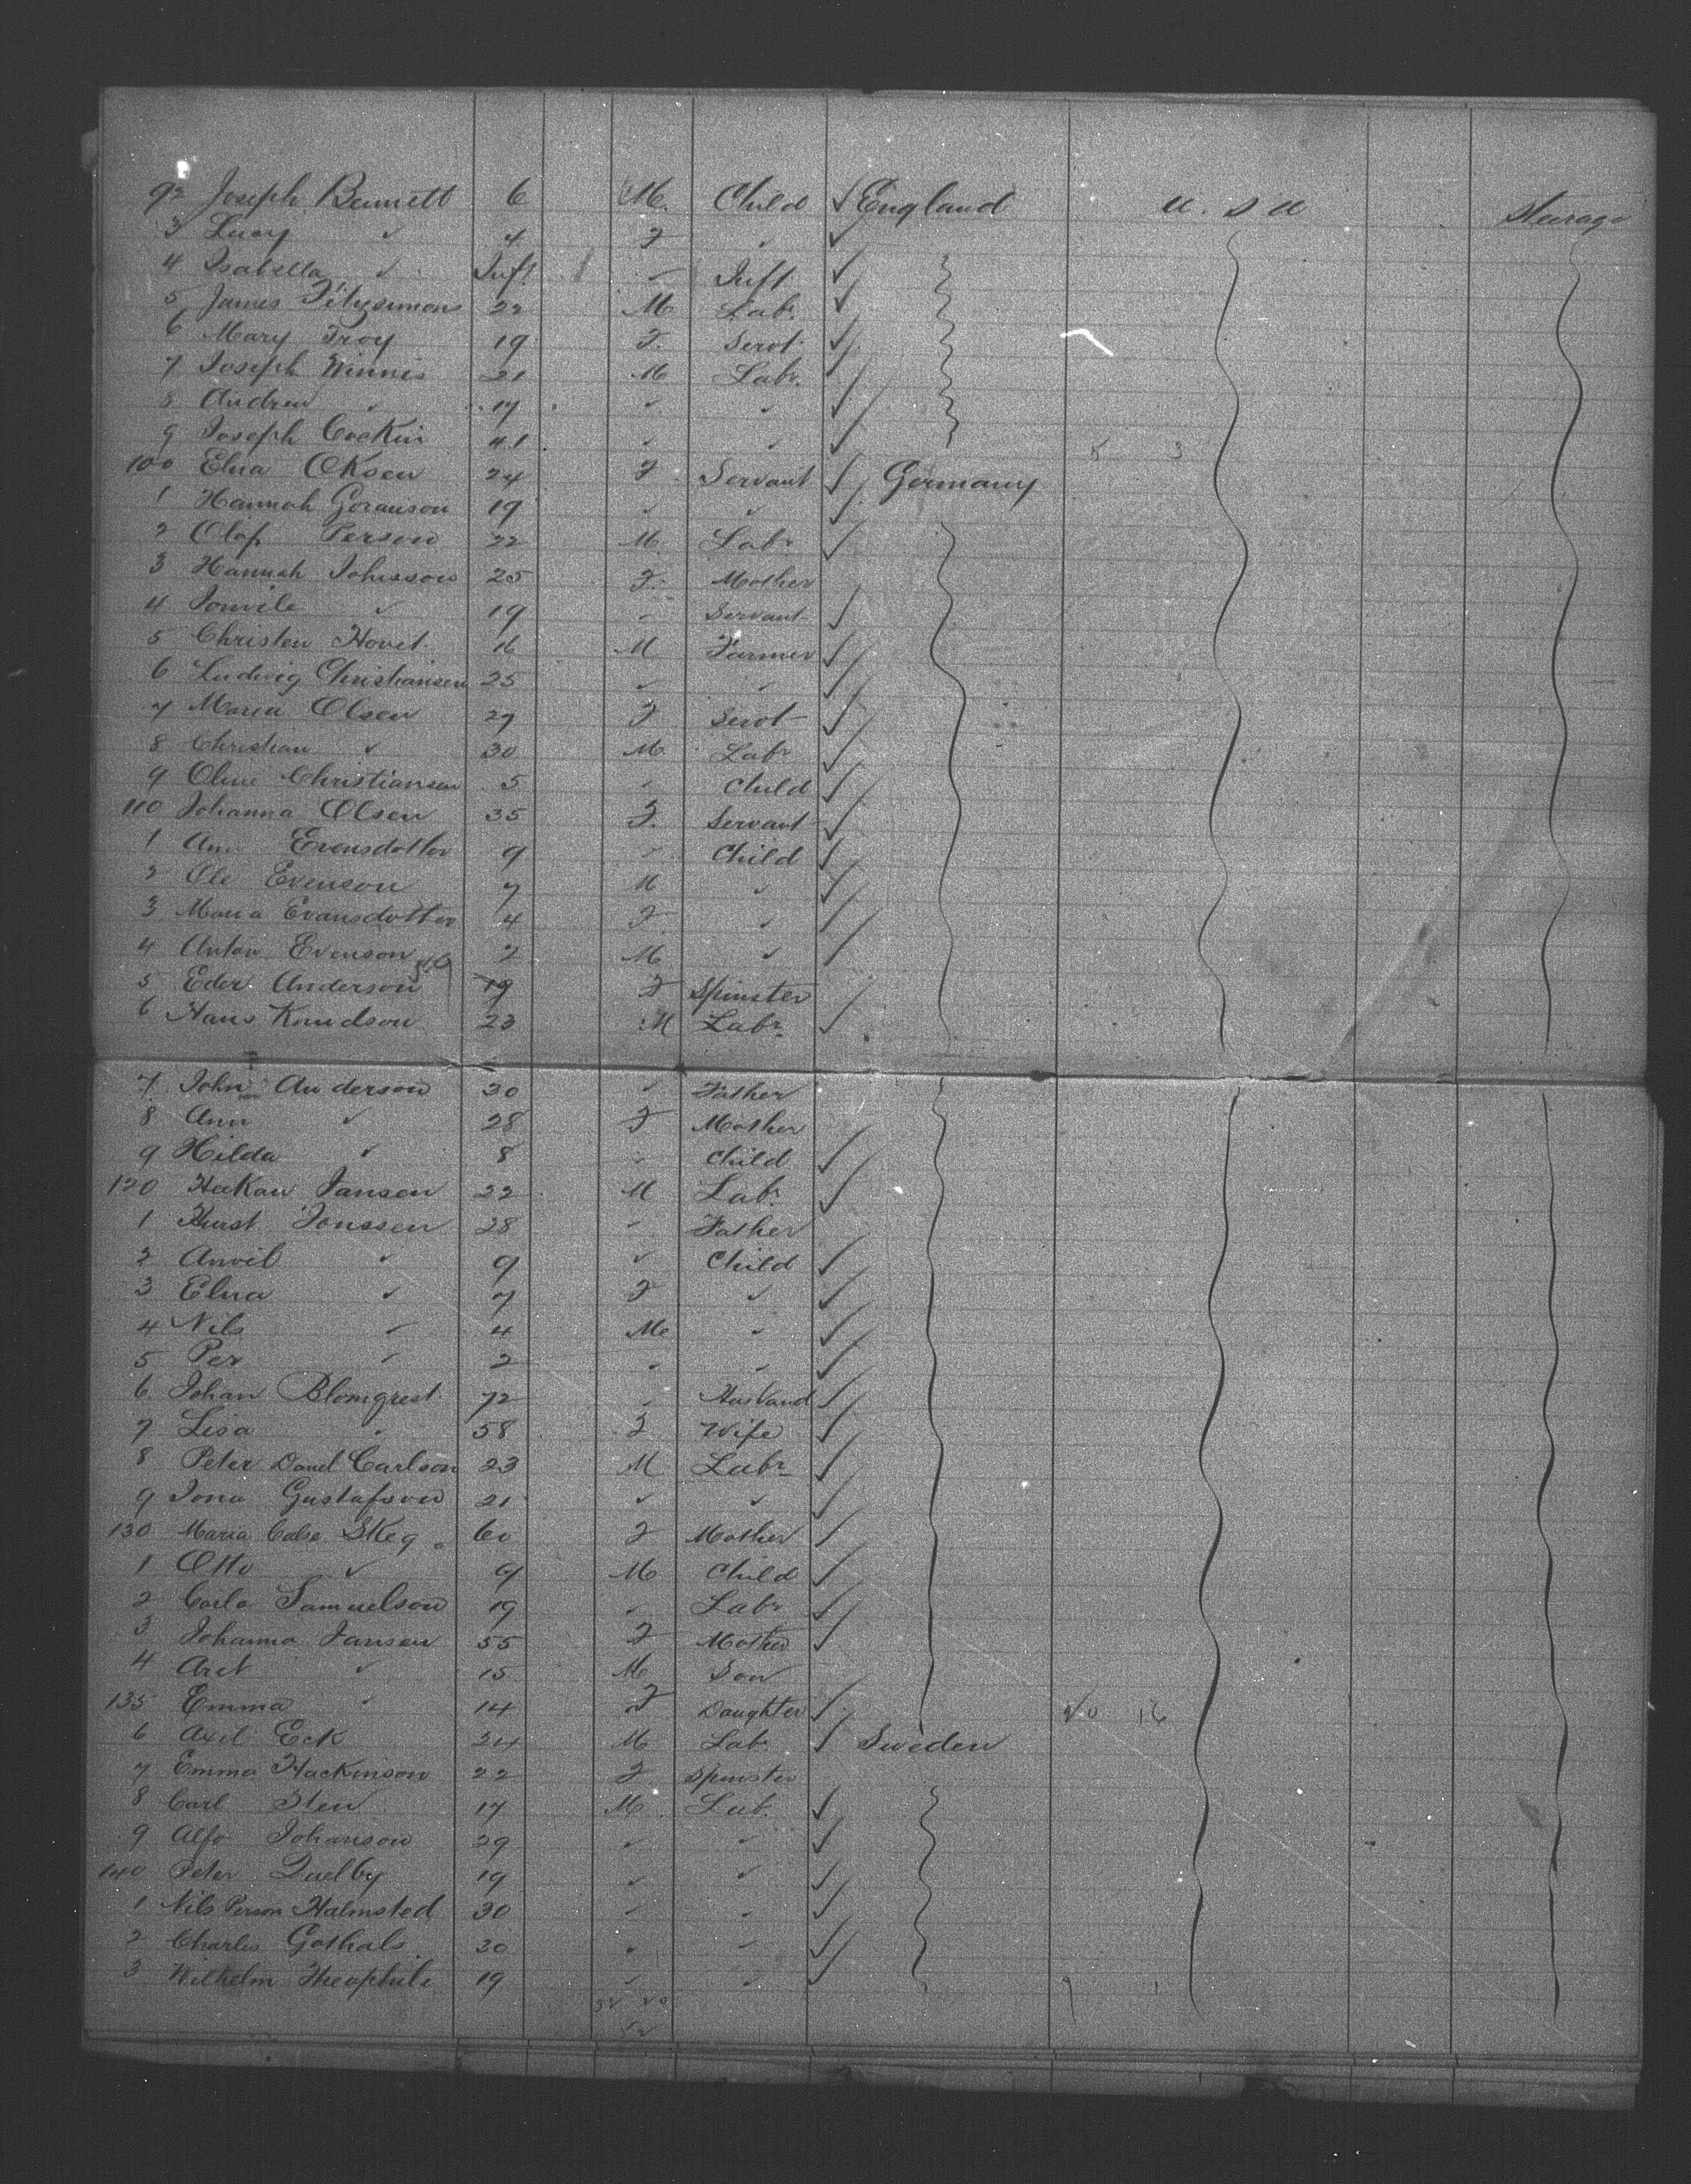 92 Joseph Bennett 6 M. Child ✓ England U. S A Steerage
3 Lucy ✓ 4 F ✓ ✓
4 Isabella ✓ Inft. Inft ✓
5 James Fitzsimons 22 M Labr. ✓
6 Mary Troy 19 F. Servt. ✓
7 Joseph Winnis 21 M Labr. ✓
8 Andrew ✓ 17 ✓ ✓ ✓
9 Joseph Cockin 41 ✓ ✓ ✓
100 Elna Oksen 24 F Servant ✓ Germany
1 Hannah Goranson 19 ✓ ✓ ✓
2 Olof Person 22 M Labr ✓
3 Hannah Johnsson 25 F. Mother
4 Jonvile ✓ 19 ✓ Servant ✓
5 Christen Hovet. 16 M Farmer ✓
6 Ludwig Christiansen 25 ✓ ✓ ✓
7 Maria Olsen 27 F Servt ✓
8 Christian ✓ 30 M Labr ✓
9 Oline Christiansen 5 ✓ Child ✓
110 Johanna Olsen 35 F. Servant ✓
1 Ann Evensdotter 9 ✓ Child ✓
2 Ole Evenson 7 M ✓ ✓
3 Maria Evansdotter 4 F ✓ ✓
4 Anton Evenson 2 M ✓ ✓
5 Eder Anderson 19 F Spinster ✓
6 Hans Knudson 23 M Labr. ✓
7 John Anderson 30 ✓ Father
8 Ann ✓ 28 F Mother
9 Hilda ✓ 8 ✓ Child ✓
120 Hakan Jansen 22 M Labr ✓
1 Hurst Jonssen 28 ✓ Father
2 Anvil ✓ 9 ✓ Child ✓
3 Elna ✓ 7 F ✓ ✓
4 Nils ✓ 4 M ✓ ✓
5 Per ✓ 2 ✓ ✓ ✓
6 Johan Blomgrest. 72 ✓ Husband ✓
7 Lisa ✓ 58 F Wife ✓
8 Peter Danel Carlson 23 M Labr ✓
9 Jona Gustafson 21 ✓ ✓ ✓
130 Maria Skeg 60 F Mother ✓
1 Otto ✓ 9 M Child ✓
2 Carla Samuelson 19 ✓ Labr ✓
3 Johanna Jansen 55 F Mother ✓
4 Aret ✓ 15 M Son
135 Emma ✓ 14 F Daughter ✓ 20 16
6 Axil Eck 24 M Labr ✓ Sweden
7 Emma Hackinson 22 F Spinster
8 Carl Sten 17 M Lab. ✓
9 Alfo Johanson 29 ✓ ✓ ✓
140 Peter Duelby 19 ✓ ✓ ✓
1 Nils Person Halmsted 30 ✓ ✓ ✓
2 Charles Gothals 30 ✓ ✓ ✓
3 Wilhelm Theophile 19 ✓ ✓ ✓